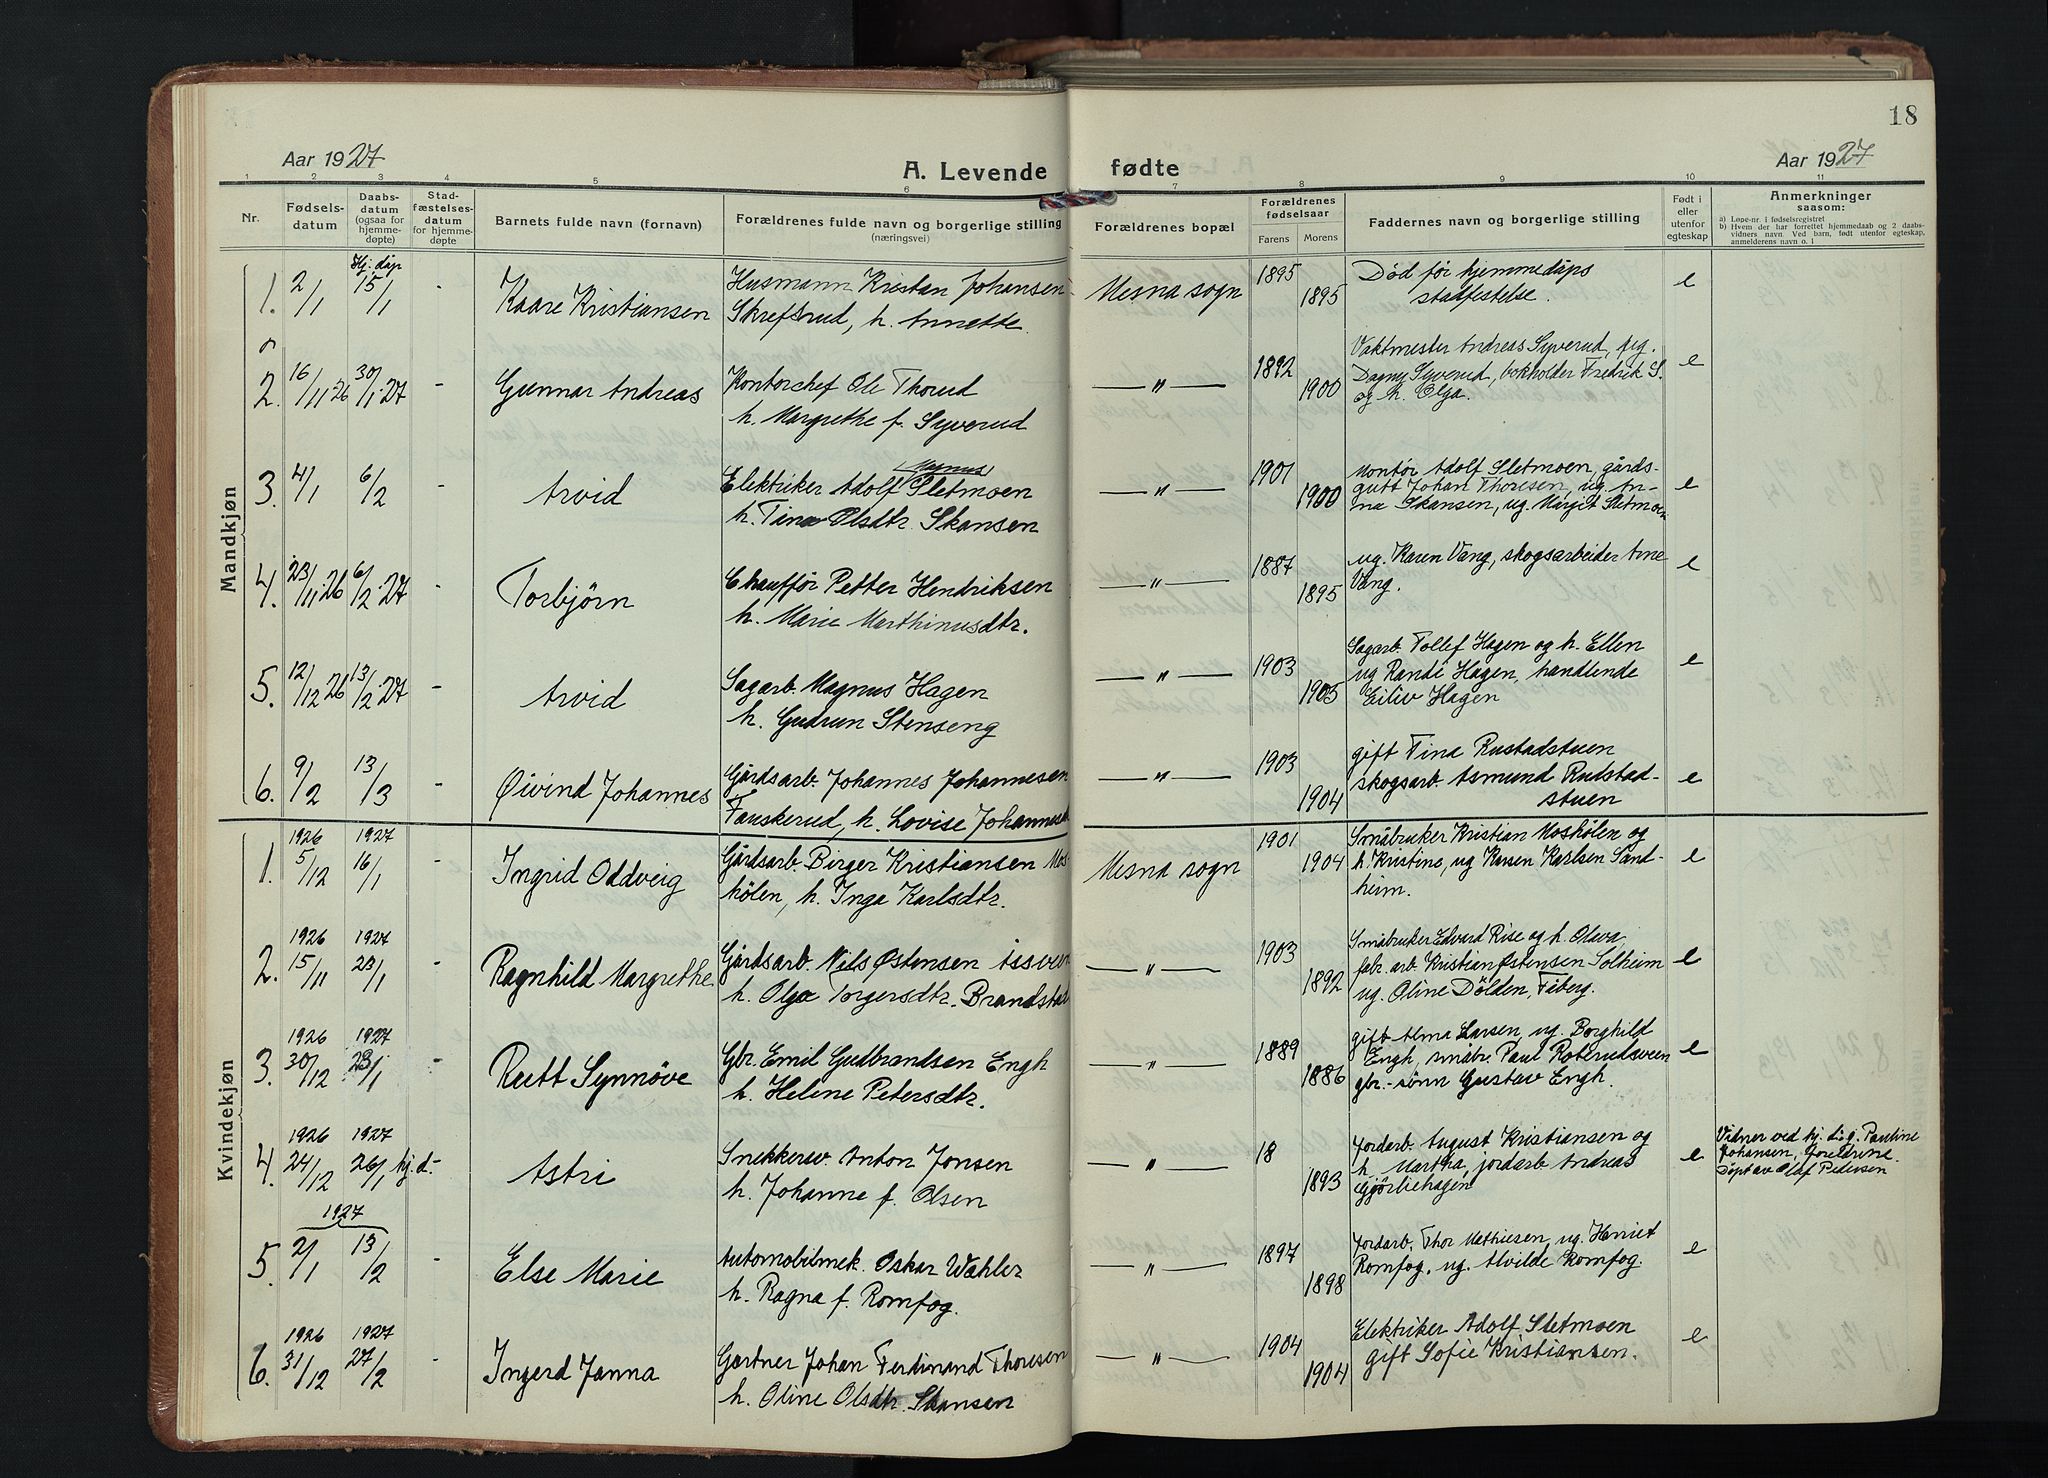 18
Aar 1927
A. Levende fødte
Aar 1927
1 2 3 4 5 6 7 8 9 10 11
Nr.
Fødsels-
datum
Daabs-
datum
(ogsaa for
hjemme-
døpte)
Stad-
fæstelses-
datum
for hjemme-
døpte
Barnets fulde navn (fornavn)
Forældrenes fulde navn og borgerlige stilling
(næringsvei)
Forældrenes bopæl
Forældrenes
fødselsaar
Farens Morens
Faddernes navn og borgerlige stilling
Født i
eller
utenfor
egteskap
Anmerkninger
saasom:
a) Løpe-nr. i fødselsregistret
b) Hvem der har forrettet hjemmedaab og 2 daabs-
vidners navn. Ved barn, født utenfor egteskap,
anmelderens navn o. l
Mandkjøn
1. 2/1 Hj. dåp 15/1 Kaare Kristiansen
Husmann Kristian Johansen
Skrefsrud, h. Annette.
Mesna sogn 1895 1895
Død før hjemmedåps
stadfestelse.
e
2. 16/11 26 30/1 27 - Gunnar Andreas
Kontorchef Ole Thorud
h. Margrethe f. Syverud
— " — 1892 1900
Vaktmester Andreas Syverud, pig.
Dagny Syverud, bokholder Fredrik S.
og h. Olga.
e
3. 4/1 6/2 - Arvid
Elektriker Adolf Magnus Sletmoen
h. Tina Olsdtr. Skansen
— " — 1901 1900
Montør Adolf Sletmoen, gårds-
gutt Johan Thoresen, ug. An-
na Skansen, ug. Margit Sletmoen
e
4. 23/11 26 6/2 27 Torbjörn
Chauffør Petter Hendriksen
h. Marie Marthinusdtr.
— " — 1887 1895
ug. Karen Vang, skogsarbeider Arne
Vang.
e
5. 12/12 26 13/2 27 - Arvid
Sagarb. Magnus Hagen
h. Gudrun Stenseng
— " — 1903 1905
Sagarb. Tollef Hagen og h. Ellen
ug Randi Hagen, handlende
Eiliv Hagen
e
6. 9/2 13/3 - Øivind Johannes
Gårdsarb. Johannes Johannesen
Fauskerud, h. Lovise Johannesd.
— " — 1903 1904
gift Tina Rustadstuen
skogsarb. Asmund Rudstad-
stuen
e
Kvindekjøn
1. 1926 5/12 1927 16/1 - Ingrid Oddveig
Gårdsarb. Birger Kristiansen Mos-
hölen, h. Inga Karlsdtr.
Mesna sogn 1901 1904
Småbruker Kristian Moshölen og
h. Kristine, ug Karen Karlsen Sand-
heim.
e
2. 1926 15/11 1927 23/1 - Ragnhild Margrethe.
Gårdsarb. Nils Østensen Åssveen
h. Olga Torgersdtr. Brandstad
— " — 1903 1892
Småbruker Edvard Rise og h. Olava
fabr. arb. Kristian Østensen Solheim
ug. Oline Dölden, Fåberg.
e
3. 1926 30/12 1927 23/1 - Rutt Synnöve
Gbr. Emil Gudbrandsen Engh
h. Helene Petersdtr.
— " — 1889 1886
gift Alma Larsen, ug. Borghild
Engh, småbr. Paul Roterudsveen
gbr.-sønn Gustav Engh.
e
4. 1926 24/12 1927 26/1 hj.d.- Astri
Snekkersv. Anton Jonsen
h. Johanne f. Olsen
— " — 18 1893
Jordarb. August Kristiansen og
h. Martha, jordarb. Andreas
Gjørliehagen
e
Vidner ved hj. d: g. Pauline
Johansen, foreldrene.
Døpt av Olaf Pedersen
5. 1927 2/1 13/2 - Else Marie
Automobilmek. Oskar Wahler
h. Ragna f. Romfog.
— " — 1897 1898
Jordarb. Thor Mathiesen, ug. Harriet
Romfog, ug. Alvilde Romfog.
e
6. 1926 31/12 1927 27/2 - Ingerd Janna
Gartner Johan Ferdinand Thoresen
h. Oline Olsdtr. Skansen
— " — 1904 1904
Elektriker Adolf Sletmoen
gift Sofie Kristiansen.
e